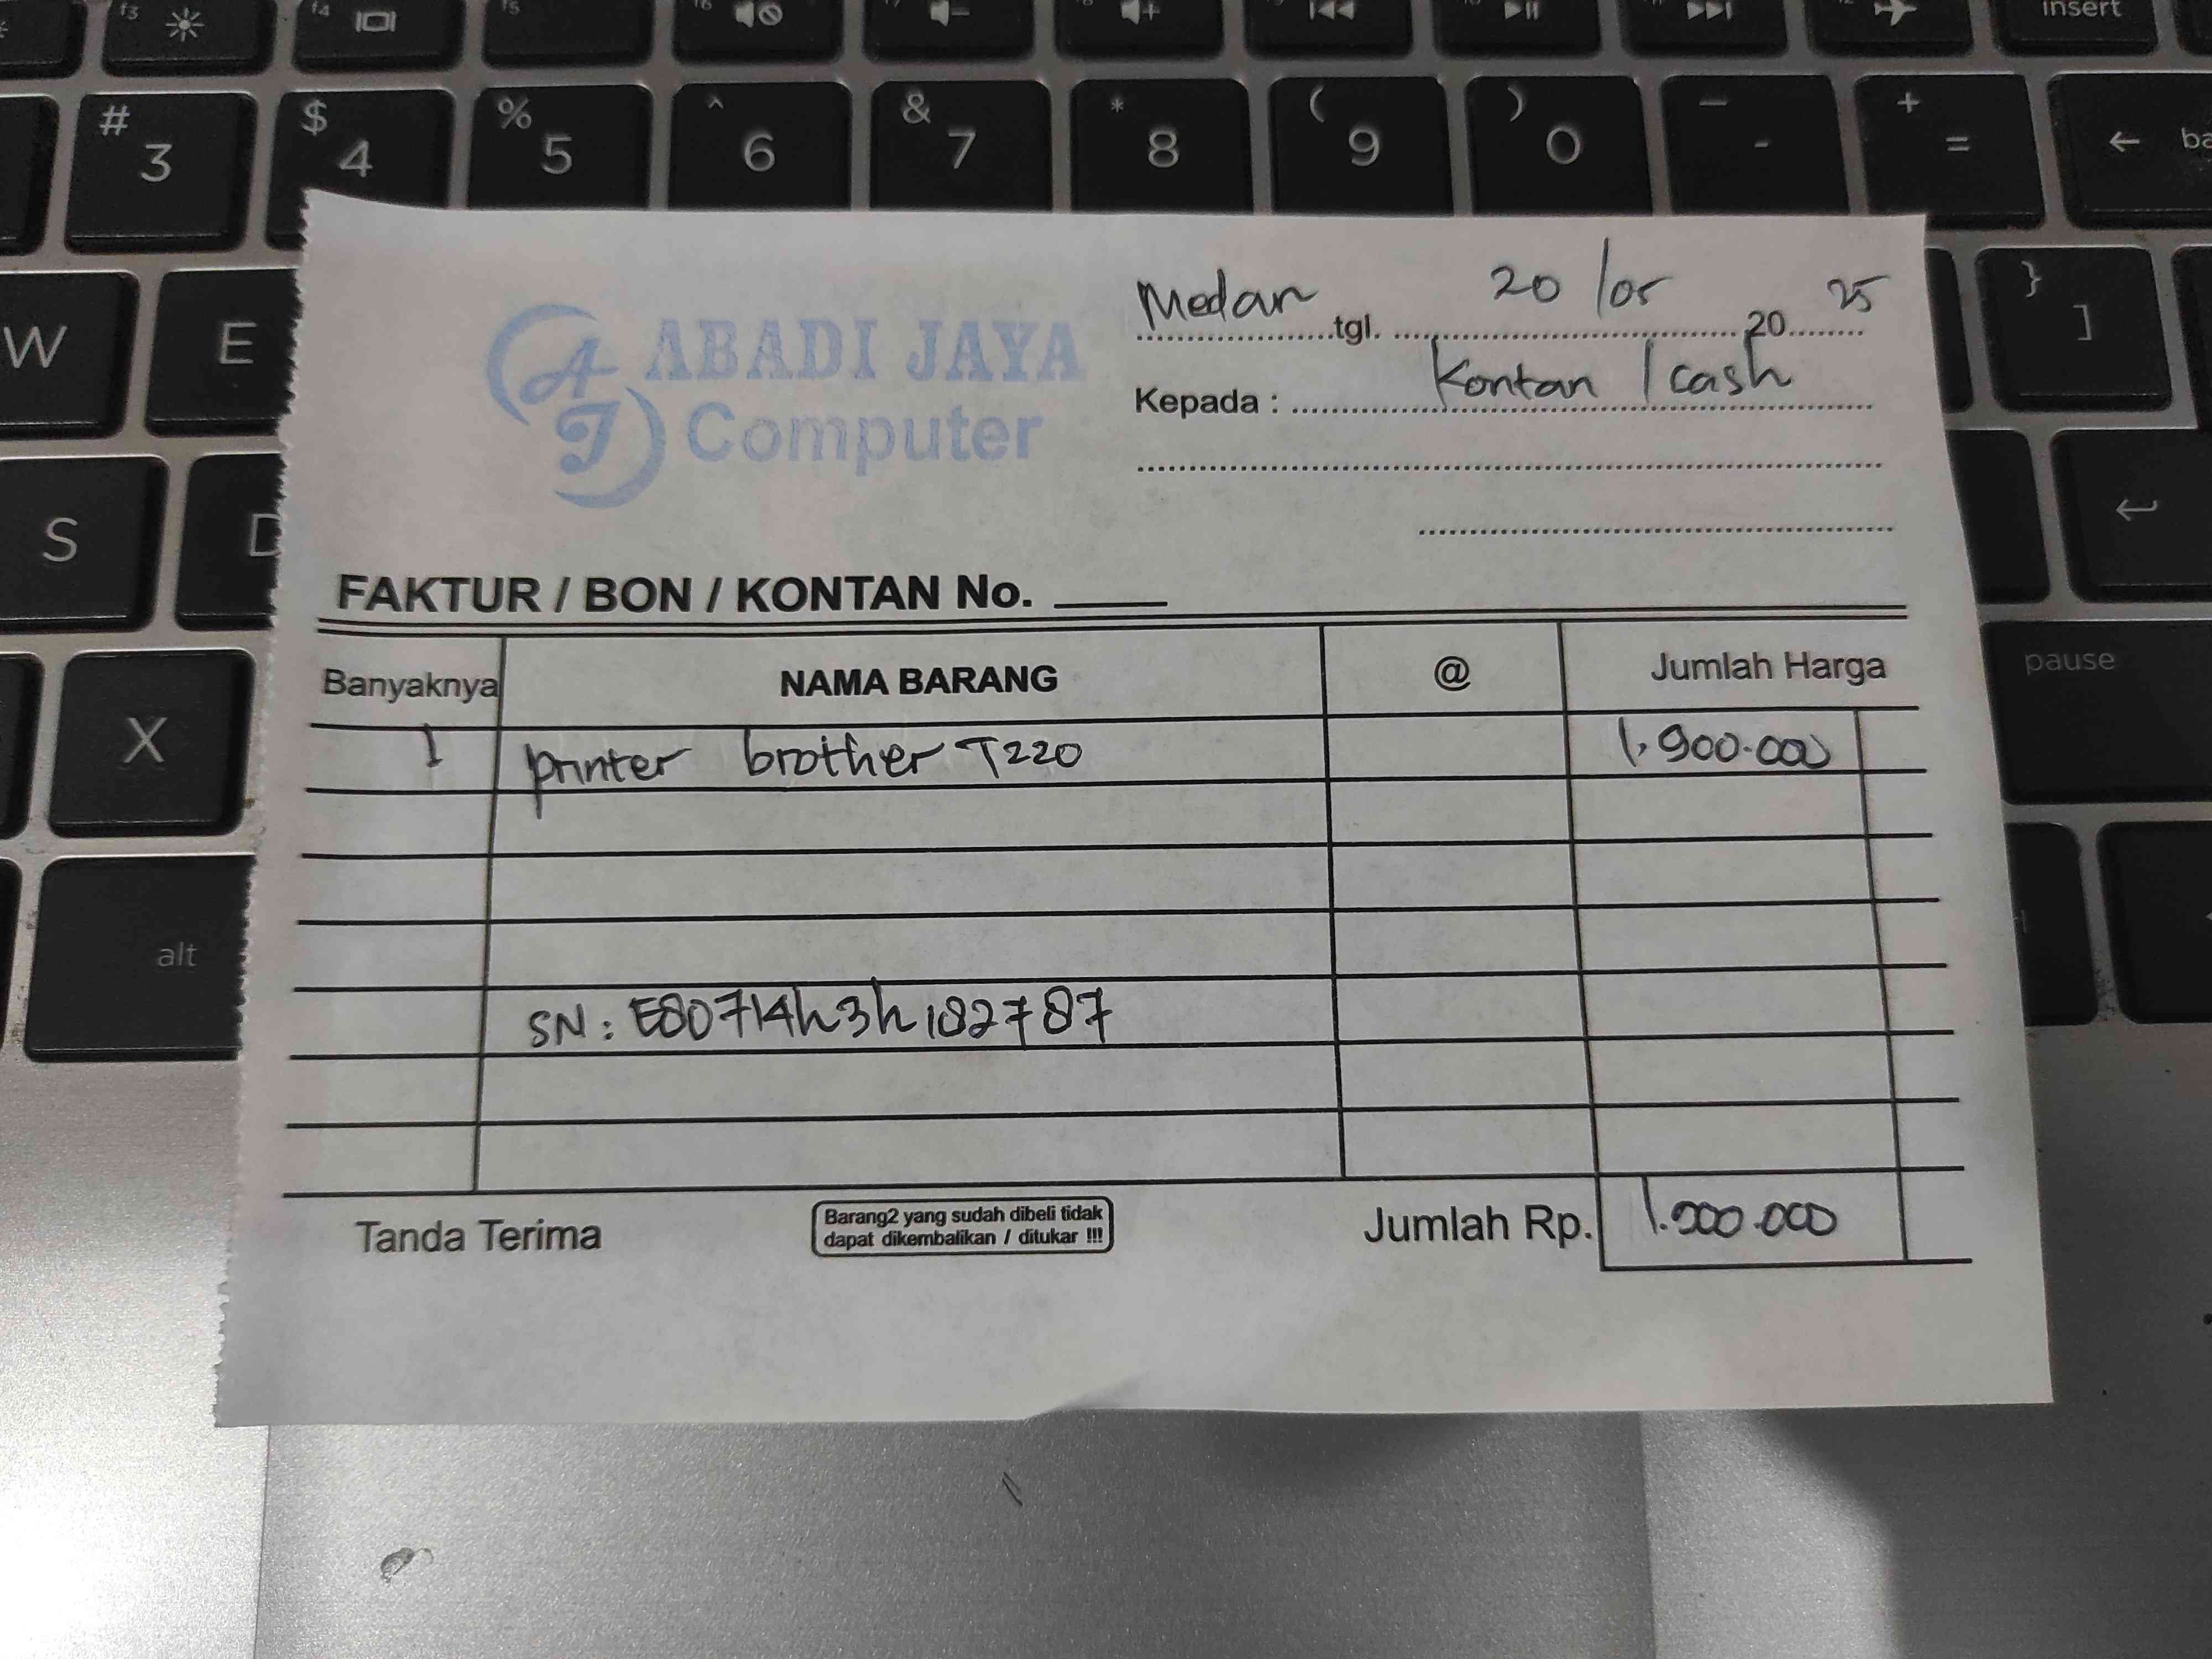 f3 f4 f5 f6 insert
# 3 $ 4 % 5 ^ 6 & 7 * 8 ( 9 ) 0 — - + = ← ba
W E } ]
S D
X pause
alt
Medan tgl. 20/05 2025
ABADI JAYA
AJ
Computer
Kepada : Kontan / cash
FAKTUR / BON / KONTAN No.
Banyaknya NAMA BARANG @ Jumlah Harga
1 printer brother T220 1.900.000
SN : E80714h3h182787
Tanda Terima
Barang2 yang sudah dibeli tidak
dapat dikembalikan / ditukar !!!
Jumlah Rp.